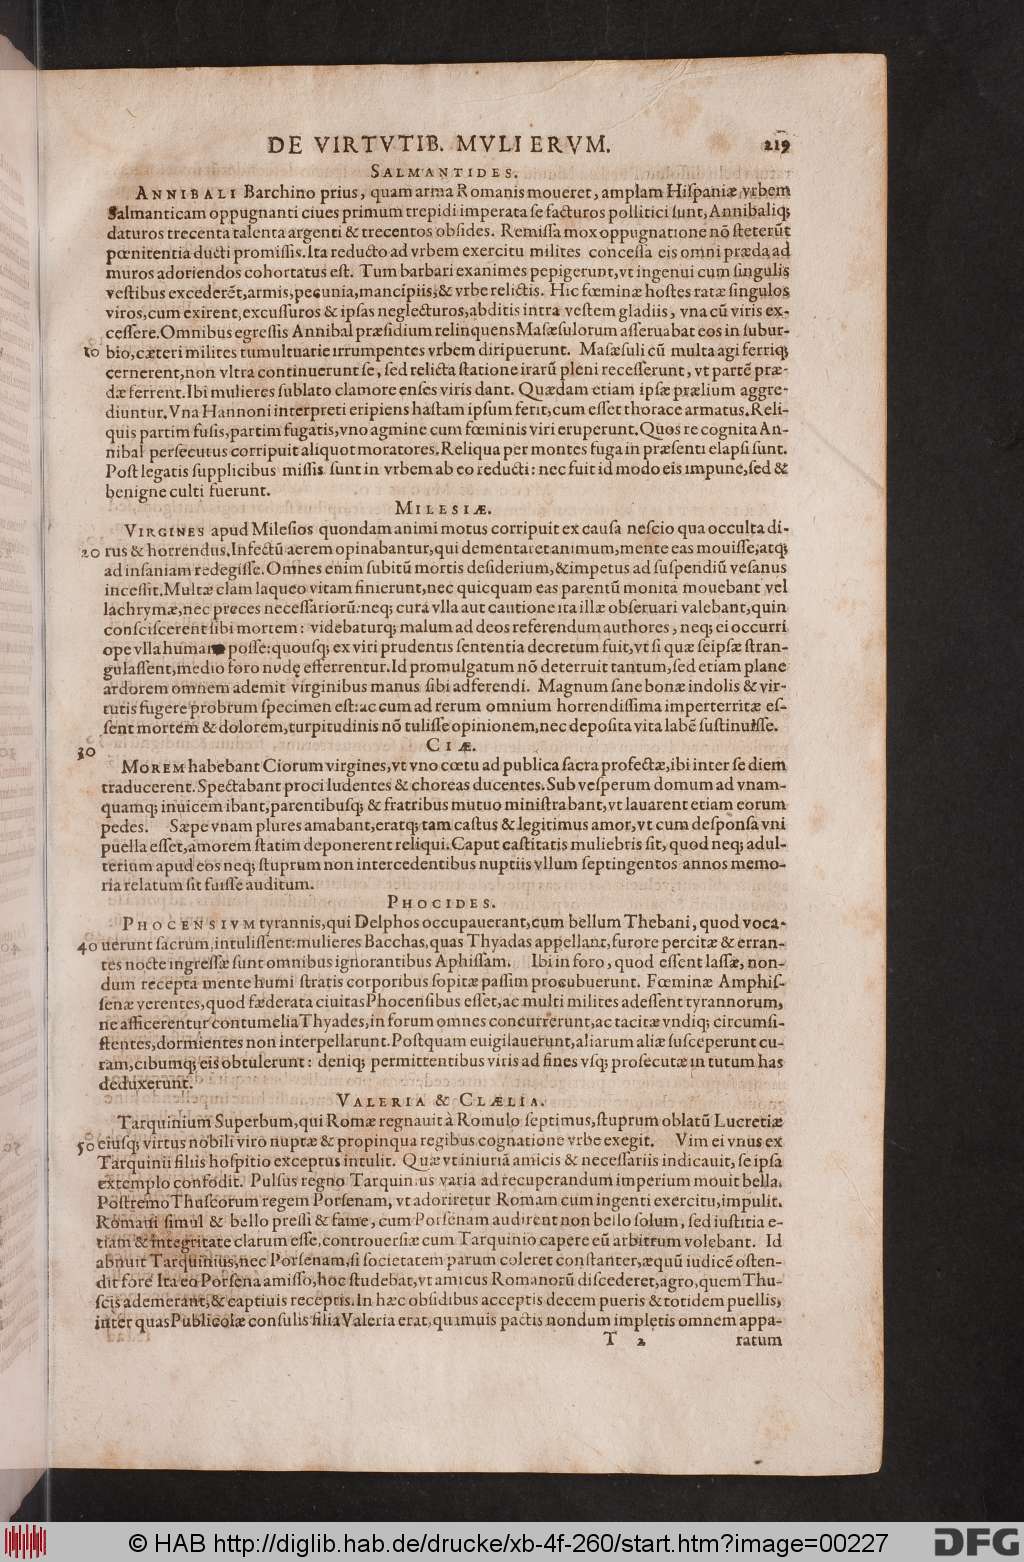 DE VIRTVTIB. MVLIERVM. 219
SALMANTIDES.
ANNIBALI Barchino prius, quam arma Romanis moueret, amplam Hiſpaniæ vrbem
Salmanticam oppugnanti ciues primum trepidi imperata ſe facturos pollitici ſunt, Annibaliq;
daturos trecenta talenta argenti & trecentos obſides. Remiſſa mox oppugnatione nõ ſteterũt
pœnitentia ducti promiſſis. Ita reducto ad vrbem exercitu milites conceſſa eis omni præda, ad
muros adoriendos cohortatus eſt. Tum barbari exanimes pepigerunt, vt ingenui cum ſingulis
veſtibus excederẽt, armis, pecunia, mancipiis, & vrbe relictis. Hic fœminæ hoſtes ratæ ſingulos
viros, cum exirent, excuſſuros & ipſas neglecturos, abditis intra veſtem gladiis, vna cũ viris ex-
ceſſere. Omnibus egreſſis Annibal præſidium relinquens Maſæſulorum aſſeruabat eos in ſubur-
10 bio, cæteri milites tumultuarie irrumpentes vrbem diripuerunt. Maſæſuli cũ multa agi ferriq;
cernerent, non vltra continuerunt ſe, ſed relicta ſtatione irarũ pleni receſſerunt, vt partẽ præ-
dæ ferrent. Ibi mulieres ſublato clamore enſes viris dant. Quædam etiam ipſæ prælium aggre-
diuntur. Vna Hannoni interpreti eripiens haſtam ipſum ferit, cum eſſet thorace armatus. Reli-
quis partim fuſis, partim fugatis, vno agmine cum fœminis viri eruperunt. Quos re cognita An-
nibal perſecutus corripuit aliquot moratores. Reliqua per montes fuga in præſenti elapſi ſunt.
Poſt legatis ſupplicibus miſſis ſunt in vrbem ab eo reducti: nec fuit id modo eis impune, ſed &
benigne culti fuerunt.
MILESIÆ.
VIRGINES apud Mileſios quondam animi motus corripuit ex cauſa neſcio qua occulta di-
20 rus & horrendus. Infectũ aerem opinabantur, qui dementaret animum, mente eas mouiſſe, atq;
ad inſaniam redegiſſe. Omnes enim ſubitũ mortis deſiderium, & impetus ad ſuſpendiũ veſanus
inceſſit. Multæ clam laqueo vitam finierunt, nec quicquam eas parentũ monita mouebant vel
lachrymæ, nec preces neceſſariorũ: neq; cura vlla aut cautione ita illæ obſeruari valebant, quin
conſciſcerent ſibi mortem: videbaturq; malum ad deos referendum authores, neq; ei occurri
ope vlla humana poſſe: quouſq; ex viri prudentis ſententia decretum fuit, vt ſi quæ ſeipſæ ſtran-
gulaſſent, medio foro nudę efferrentur. Id promulgatum nõ deterruit tantum, ſed etiam plane
ardorem omnem ademit virginibus manus ſibi adferendi. Magnum ſane bonæ indolis & vir-
tutis fugere probrum ſpecimen eſt: ac cum ad rerum omnium horrendiſſima imperterritæ eſ-
ſent mortem & dolorem, turpitudinis nõ tuliſſe opinionem, nec depoſita vita labẽ ſuſtinuiſſe.
30 CIÆ.
MOREM habebant Ciorum virgines, vt vno cœtu ad publica ſacra profectæ, ibi inter ſe diem
traducerent. Spectabant proci ludentes & choreas ducentes. Sub veſperum domum ad vnam-
quamq; inuicem ibant, parentibuſq; & fratribus mutuo miniſtrabant, vt lauarent etiam eorum
pedes. Sæpe vnam plures amabant, eratq; tam caſtus & legitimus amor, vt cum deſponſa vni
puella eſſet, amorem ſtatim deponerent reliqui. Caput caſtitatis muliebris ſit, quod neq; adul-
terium apud eos neq; ſtuprum non intercedentibus nuptiis vllum ſeptingentos annos memo-
ria relatum ſit fuiſſe auditum.
PHOCIDES.
PHOCENSIVM tyrannis, qui Delphos occupauerant, cum bellum Thebani, quod voca-
40 uerunt ſacrum, intuliſſent: mulieres Bacchas, quas Thyadas appellant, furore percitæ & erran-
tes nocte ingreſſæ ſunt omnibus ignorantibus Aphiſſam. Ibi in foro, quod eſſent laſſæ, non-
dum recepta mente humi ſtratis corporibus ſopitæ paſſim procubuerunt. Fœminæ Amphiſ-
ſenæ verentes, quod fæderata ciuitas Phocenſibus eſſet, ac multi milites adeſſent tyrannorum,
ne afficerentur contumelia Thyades, in forum omnes concurrerunt, ac tacitæ vndiq; circumſi-
ſtentes, dormientes non interpellarunt. Poſtquam euigilauerunt, aliarum aliæ ſuſceperunt cu-
ram, cibumq; eis obtulerunt: deniq; permittentibus viris ad fines vſq; proſecutæ in tutum has
deduxerunt.
VALERIA & CLÆLIA.
Tarquinium Superbum, qui Romæ regnauit à Romulo ſeptimus, ſtuprum oblatũ Lucretiæ
50 eiuſq; virtus nobili viro nuptæ & propinqua regibus cognatione vrbe exegit. Vim ei vnus ex
Tarquinii filiis hoſpitio exceptus intulit. Quæ vt iniuriã amicis & neceſſariis indicauit, ſe ipſa
extemplo confodit. Pulſus regno Tarquinius varia ad recuperandum imperium mouit bella.
Poſtremo Thuſcorum regem Porſenam, vt adoriretur Romam cum ingenti exercitu, impulit.
Romani ſimul & bello preſſi & fame, cum Porſenam audirent non bello ſolum, ſed iuſtitia e-
tiam & integritate clarum eſſe, controuerſiæ cum Tarquinio capere eũ arbitrum volebant. Id
abnuit Tarquinius, nec Porſenam, ſi ſocietatem parum coleret conſtanter, æquũ iudicẽ oſten-
dit fore Ita eo Porſena amiſſo, hoc ſtudebat, vt amicus Romanorũ diſcederet, agro, quem Thu-
ſcis ademerant, & captiuis receptis. In hæc obſidibus acceptis decem pueris & totidem puellis,
inter quas Publicolæ conſulis filia Valeria erat, quamuis pactis nondum impletis omnem appa-
T 2 ratum
© HAB http://diglib.hab.de/drucke/xb-4f-260/start.htm?image=00227
DFG